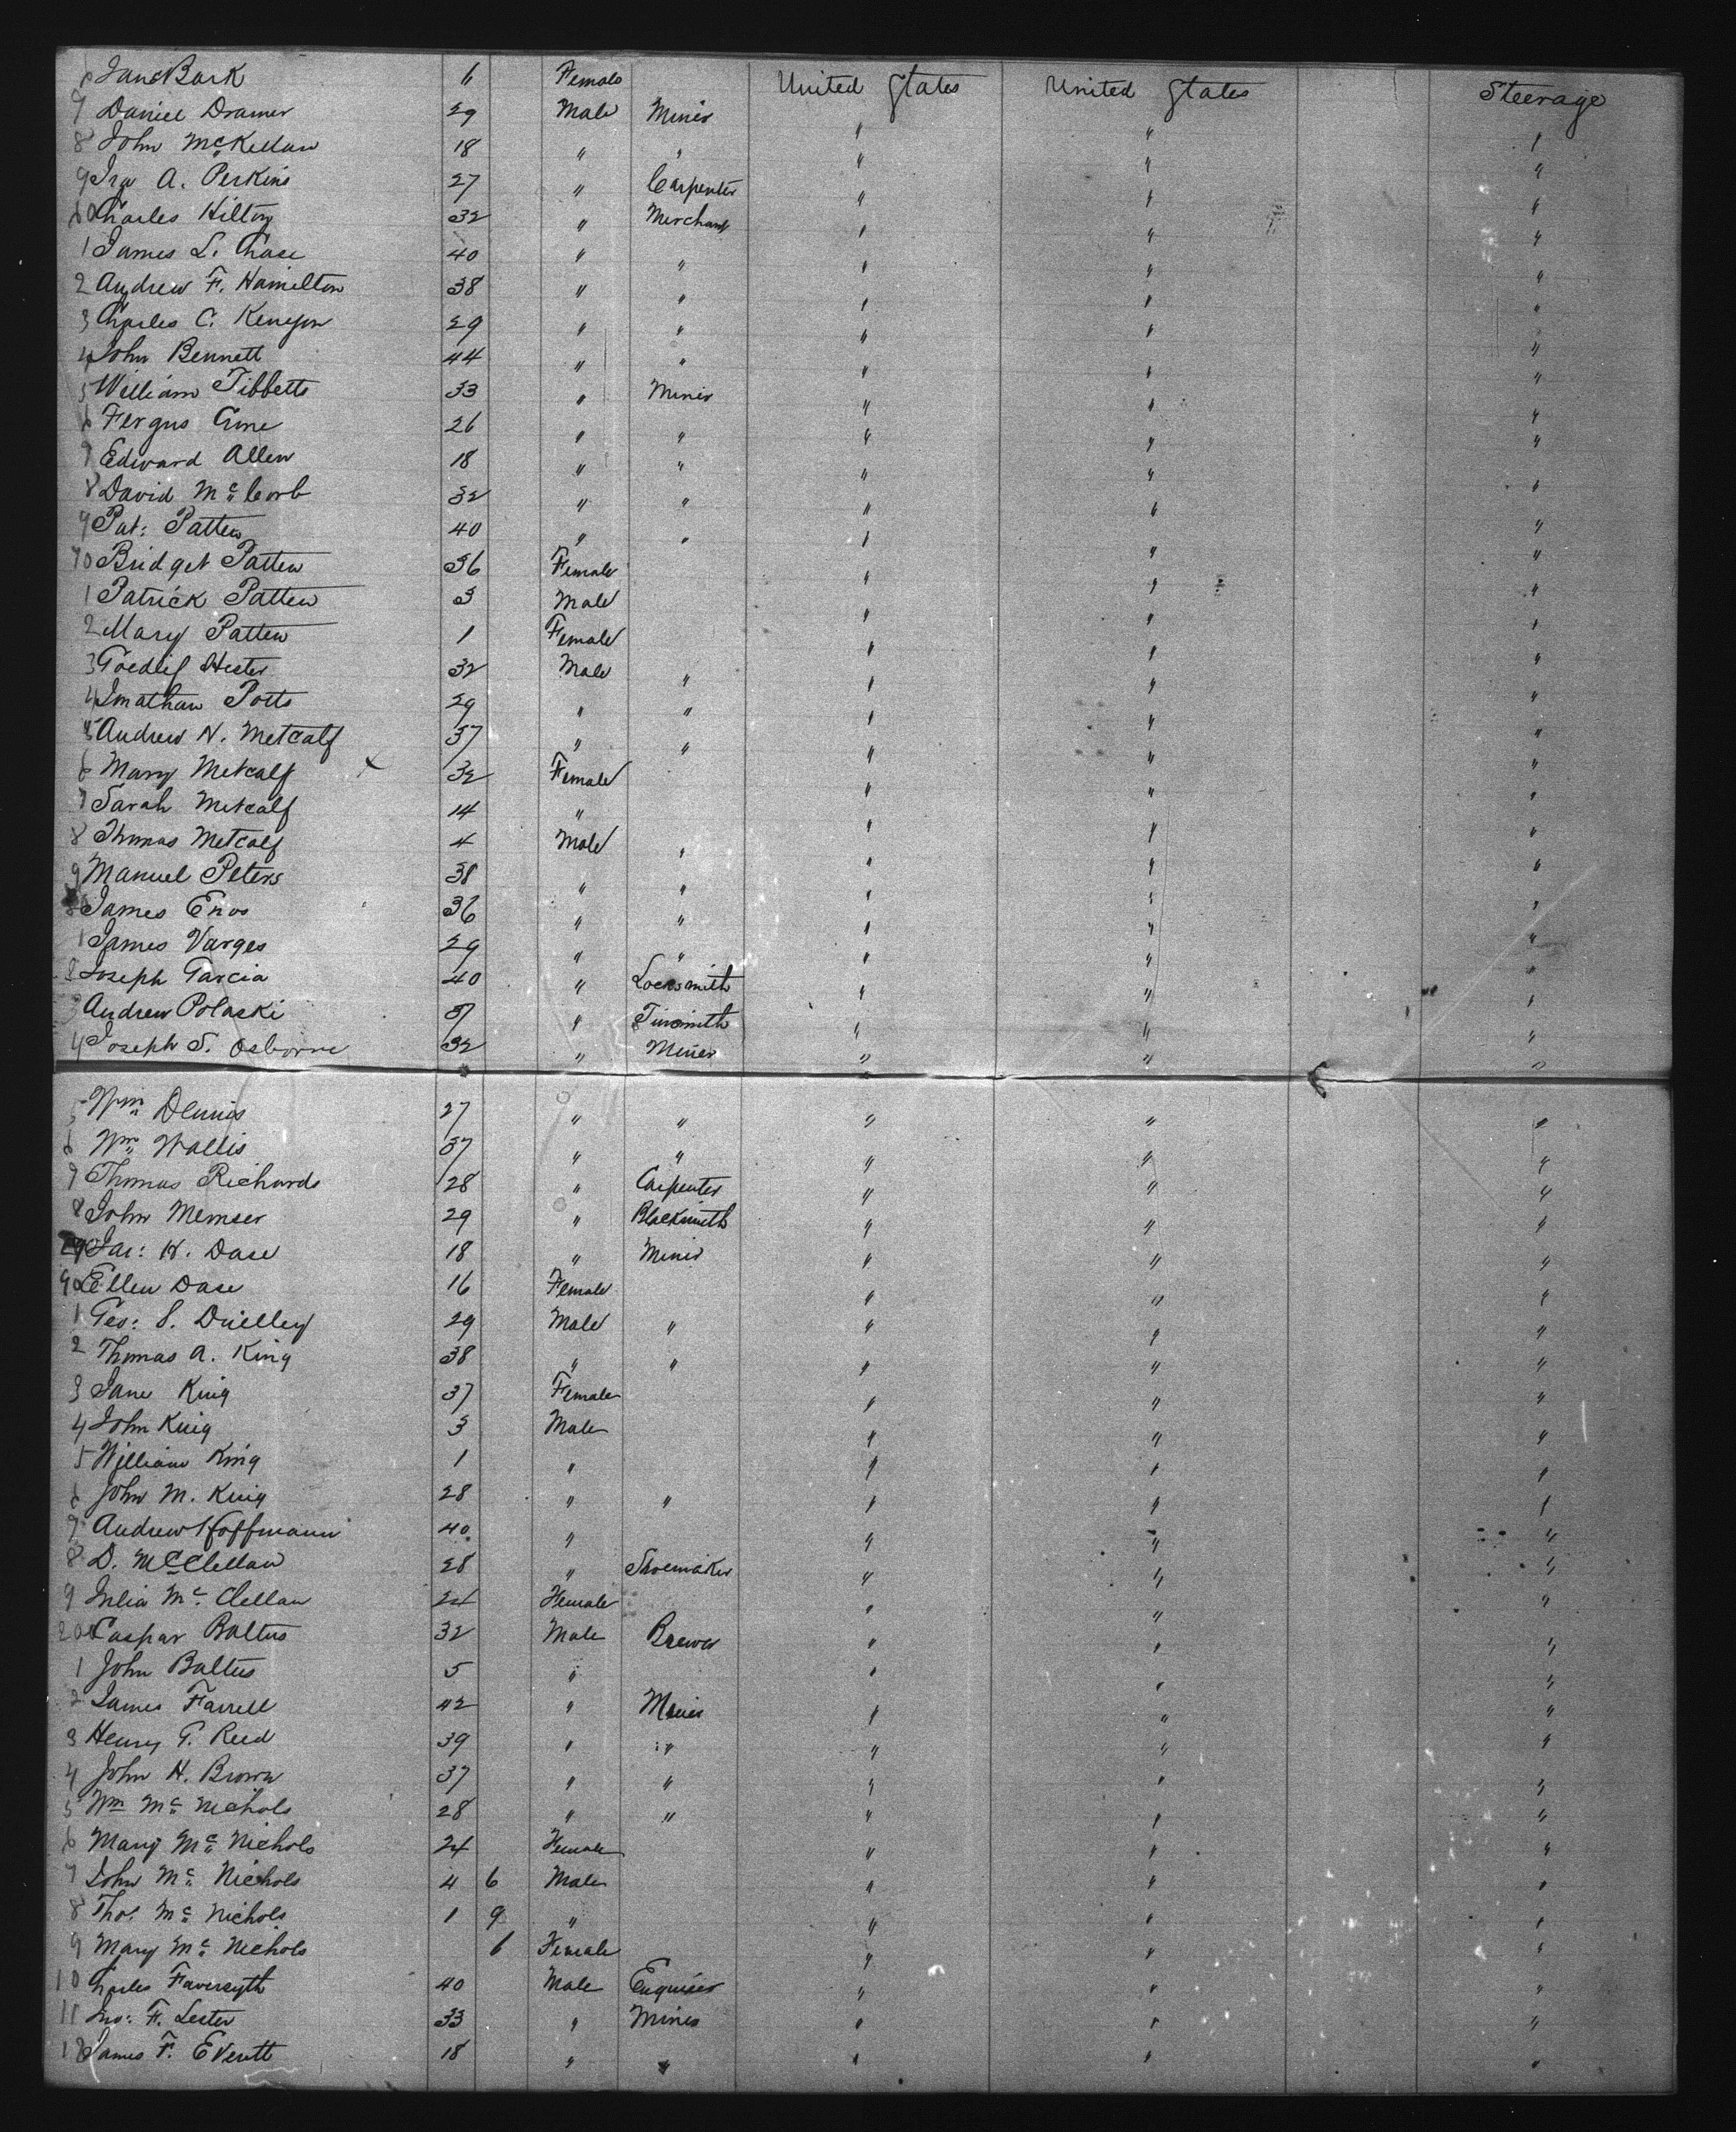 6 Jane Bark 6 Female United States United States Steerage
7 Daniel Dramer 29 Male Miner " " "
8 John McKellan 18 " " " " "
9 Ira A. Perkins 27 " Carpenter " " "
60 Charles Hilton 32 " Merchant " " "
1 James L. Chase 40 " " " " "
2 Andrew F. Hamilton 38 " " " " "
3 Charles C. Kenyon 29 " " " " "
4 John Bennett 44 " " " " "
5 William Tibbetts 33 " Miner " " "
6 Fergus 26 " " " " "
7 Edward Allen 18 " " " " "
8 David Mc 32 " " " " "
9 Pat: Patten 40 " " " " "
70 Bridget Patten 36 Female " " "
1 Patrick Patten 3 Male " " "
2 Mary Patten 1 Female " " "
3 Hester 32 Male " " " "
4 Jonathan Potts 29 " " " " "
5 Andrew N. Metcalf 37 " " " " "
6 Mary Metcalf x 32 Female " " "
7 Sarah Metcalf 14 " " " "
8 Thomas Metcalf 4 Male " " " "
9 Manuel Peters 38 " " " " "
80 James Enos 36 " " " " "
1 James Varges 29 " " " " "
2 Joseph Garcia 40 " Locksmith " " "
3 Andrew Polaski 37 " Tinsmith " " "
4 Joseph S. Osborne 32 " Miner " " "
5 Wm Dennis 27 " " " " "
6 Wm Wallis 37 " " " " "
7 Thomas Richards 28 " Carpenter " " "
8 John Memser 29 " Blacksmith " " "
Jas: H. Dase 18 " Miner " " "
90 Ellen Dase 16 Female " " "
1 Geo: S. 29 Male " " " "
2 Thomas A. King 38 " " " " "
3 Jane King 37 Female " " "
4 John King 3 Male " " "
5 William King 1 " " " "
6 John M. King 28 " " " " "
7 Andrew Hoffmann 40 " " " "
8 D. McClellan 28 " Shoemaker " " "
9 Julia McClellan 24 Female " " "
200 Caspar Baltus 32 Male Brewer " " "
1 John Baltus 5 " " " "
2 James Farrell 42 " Miner " " "
3 Henry G. Reed 39 " " " " "
4 John H. Brown 37 " " " " "
5 Wm McNichols 28 " " " " "
6 Mary McNichols 24 Female " " "
7 John McNichols 4 6 Male " " "
8 Tho: McNichols 1 9 " " " "
9 Mary McNichols 6 Female " " "
10 Charles Faversyth 40 Male Engineer " " "
11 Jno: F. Lester 33 " Miner " " "
12 James F. Everett 18 " " " " "